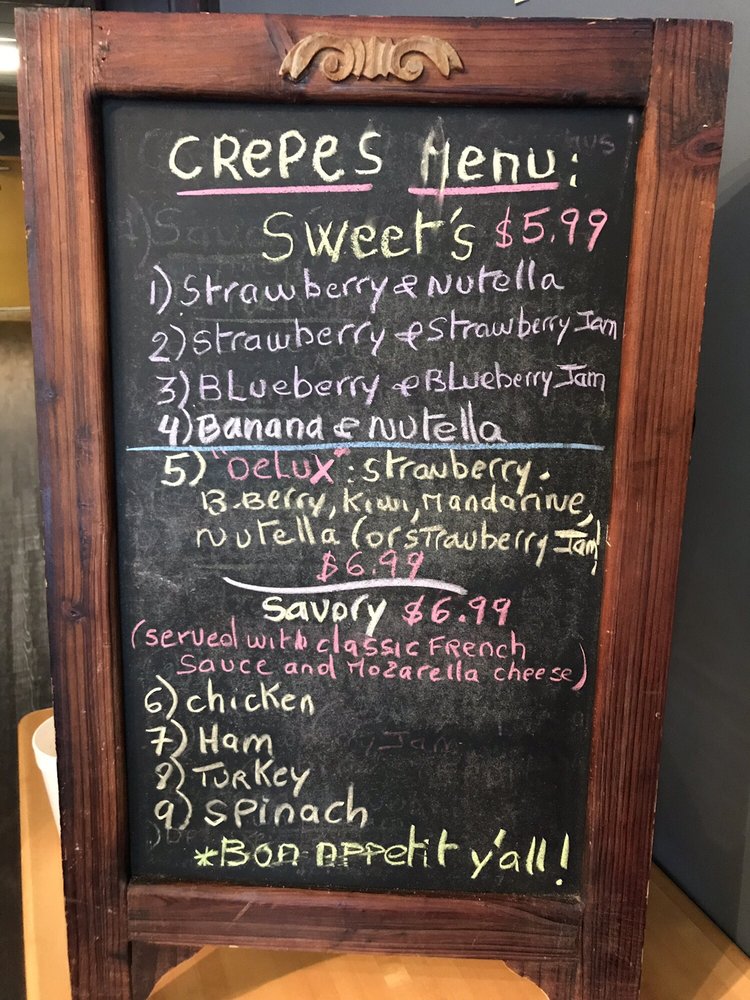 CRePeS Menu:
Sweet's $5.99
1) Strawberry & Nutella
2) Strawberry & Strawberry Jam
3) BLueberry & BLueberry Jam
4) Banana & Nutella
5) "DeLUX": Strawberry.
B.Berry, Kiwi, Mandarine,
Nutella (or STrawberry Jam)
$6.99
Savory $6.99
(served with classic French
Sauce and Mozarella cheese)
6) chicken
7) Ham
8) TURKey
9) Spinach
*Bon APPetit y'all!